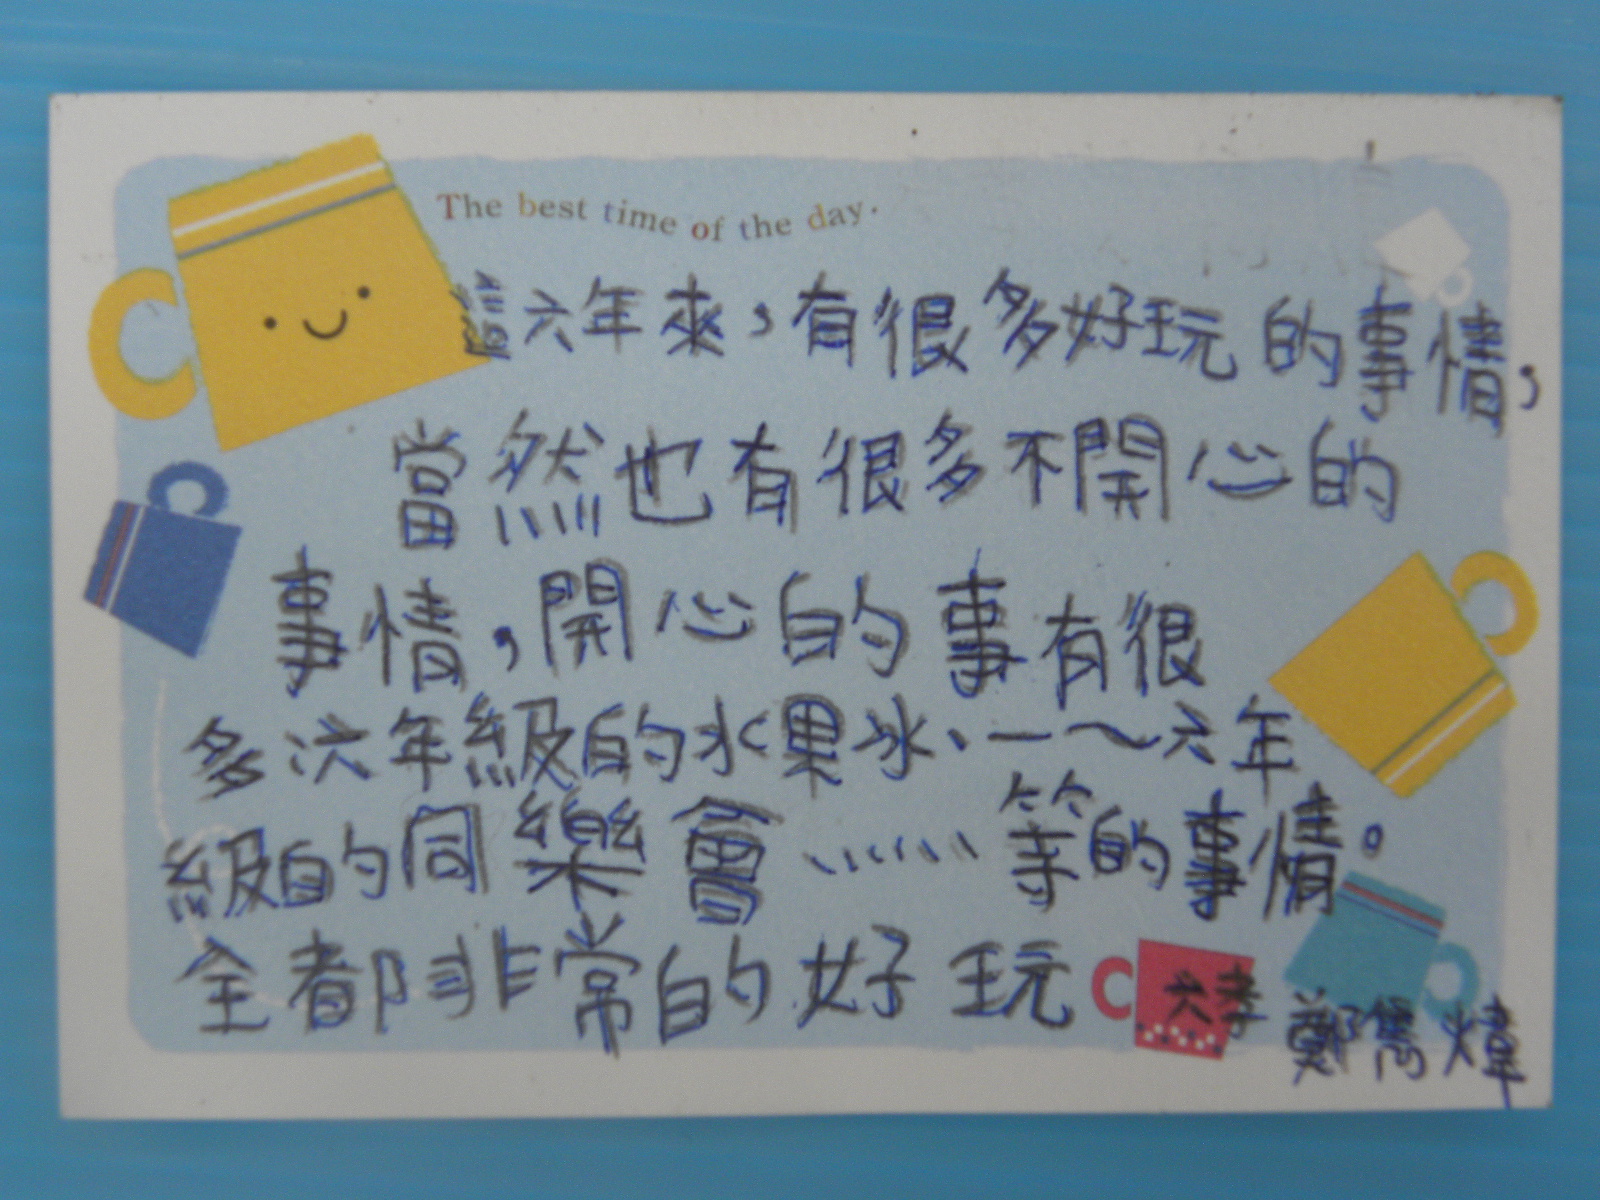 The best time of the day.
這六年來，有很多好玩的事情，
當然也有很多不開心的
事情，開心的事有很
多六年級的水果冰、一～六年
級的同樂會……等的事情。
全都非常的好玩
六孝 鄭雋煒